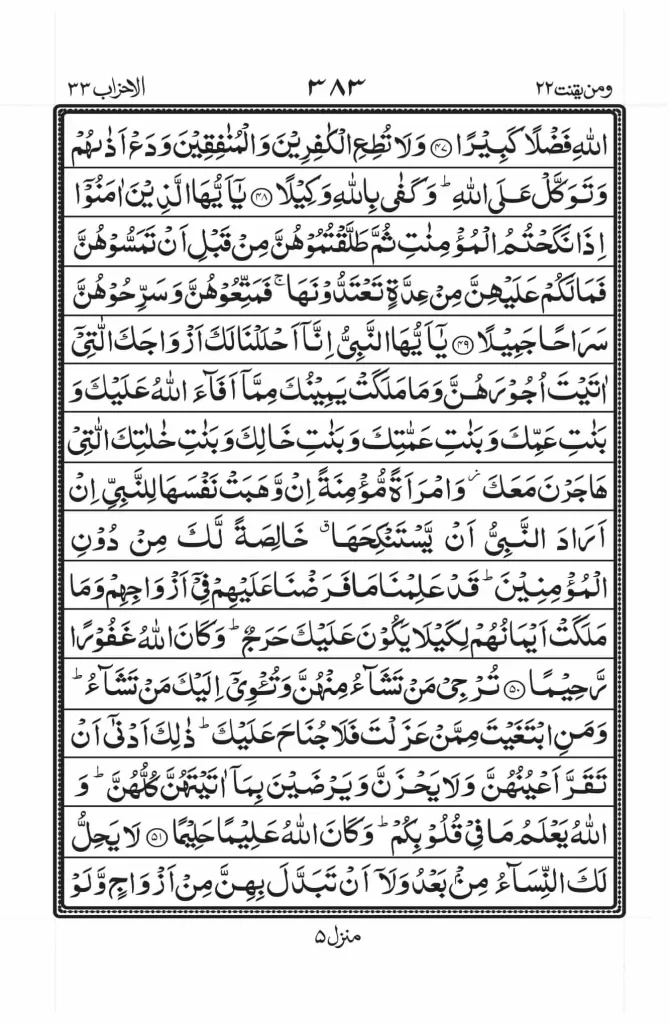 ومن یقنت ۲۲ ۳۸۳ الاحزاب ۳۳
اللّٰهِ فَضْلًا كَبِیْرًا ۝۴۷ وَ لَا تُطِعِ الْكٰفِرِیْنَ وَ الْمُنٰفِقِیْنَ وَ دَعْ اَذٰىهُمْ
وَ تَوَكَّلْ عَلَى اللّٰهِ ؕ وَ كَفٰى بِاللّٰهِ وَكِیْلًا ۝۴۸ یٰۤاَیُّهَا الَّذِیْنَ اٰمَنُوْۤا
اِذَا نَكَحْتُمُ الْمُؤْمِنٰتِ ثُمَّ طَلَّقْتُمُوْهُنَّ مِنْ قَبْلِ اَنْ تَمَسُّوْهُنَّ
فَمَا لَكُمْ عَلَیْهِنَّ مِنْ عِدَّةٍ تَعْتَدُّوْنَهَا ۚ فَمَتِّعُوْهُنَّ وَ سَرِّحُوْهُنَّ
سَرَاحًا جَمِیْلًا ۝۴۹ یٰۤاَیُّهَا النَّبِیُّ اِنَّاۤ اَحْلَلْنَا لَكَ اَزْوَاجَكَ الّٰتِیْۤ
اٰتَیْتَ اُجُوْرَهُنَّ وَ مَا مَلَكَتْ یَمِیْنُكَ مِمَّاۤ اَفَآءَ اللّٰهُ عَلَیْكَ وَ
بَنٰتِ عَمِّكَ وَ بَنٰتِ عَمّٰتِكَ وَ بَنٰتِ خَالِكَ وَ بَنٰتِ خٰلٰتِكَ الّٰتِیْ
هَاجَرْنَ مَعَكَ ؗ وَ امْرَاَةً مُّؤْمِنَةً اِنْ وَّهَبَتْ نَفْسَهَا لِلنَّبِیِّ اِنْ
اَرَادَ النَّبِیُّ اَنْ یَّسْتَنْكِحَهَا ۗ خَالِصَةً لَّكَ مِنْ دُوْنِ
الْمُؤْمِنِیْنَ ؕ قَدْ عَلِمْنَا مَا فَرَضْنَا عَلَیْهِمْ فِیْۤ اَزْوَاجِهِمْ وَ مَا
مَلَكَتْ اَیْمَانُهُمْ لِكَیْلَا یَكُوْنَ عَلَیْكَ حَرَجٌ ؕ وَ كَانَ اللّٰهُ غَفُوْرًا
رَّحِیْمًا ۝۵۰ تُرْجِیْ مَنْ تَشَآءُ مِنْهُنَّ وَ تُـْٔوِیْۤ اِلَیْكَ مَنْ تَشَآءُ ؕ
وَ مَنِ ابْتَغَیْتَ مِمَّنْ عَزَلْتَ فَلَا جُنَاحَ عَلَیْكَ ؕ ذٰلِكَ اَدْنٰۤى اَنْ
تَقَرَّ اَعْیُنُهُنَّ وَ لَا یَحْزَنَّ وَ یَرْضَیْنَ بِمَاۤ اٰتَیْتَهُنَّ كُلُّهُنَّ ؕ وَ
اللّٰهُ یَعْلَمُ مَا فِیْ قُلُوْبِكُمْ ؕ وَ كَانَ اللّٰهُ عَلِیْمًا حَلِیْمًا ۝۵۱ لَا یَحِلُّ
لَكَ النِّسَآءُ مِنْۢ بَعْدُ وَ لَاۤ اَنْ تَبَدَّلَ بِهِنَّ مِنْ اَزْوَاجٍ وَّ لَوْ
منزل ۵